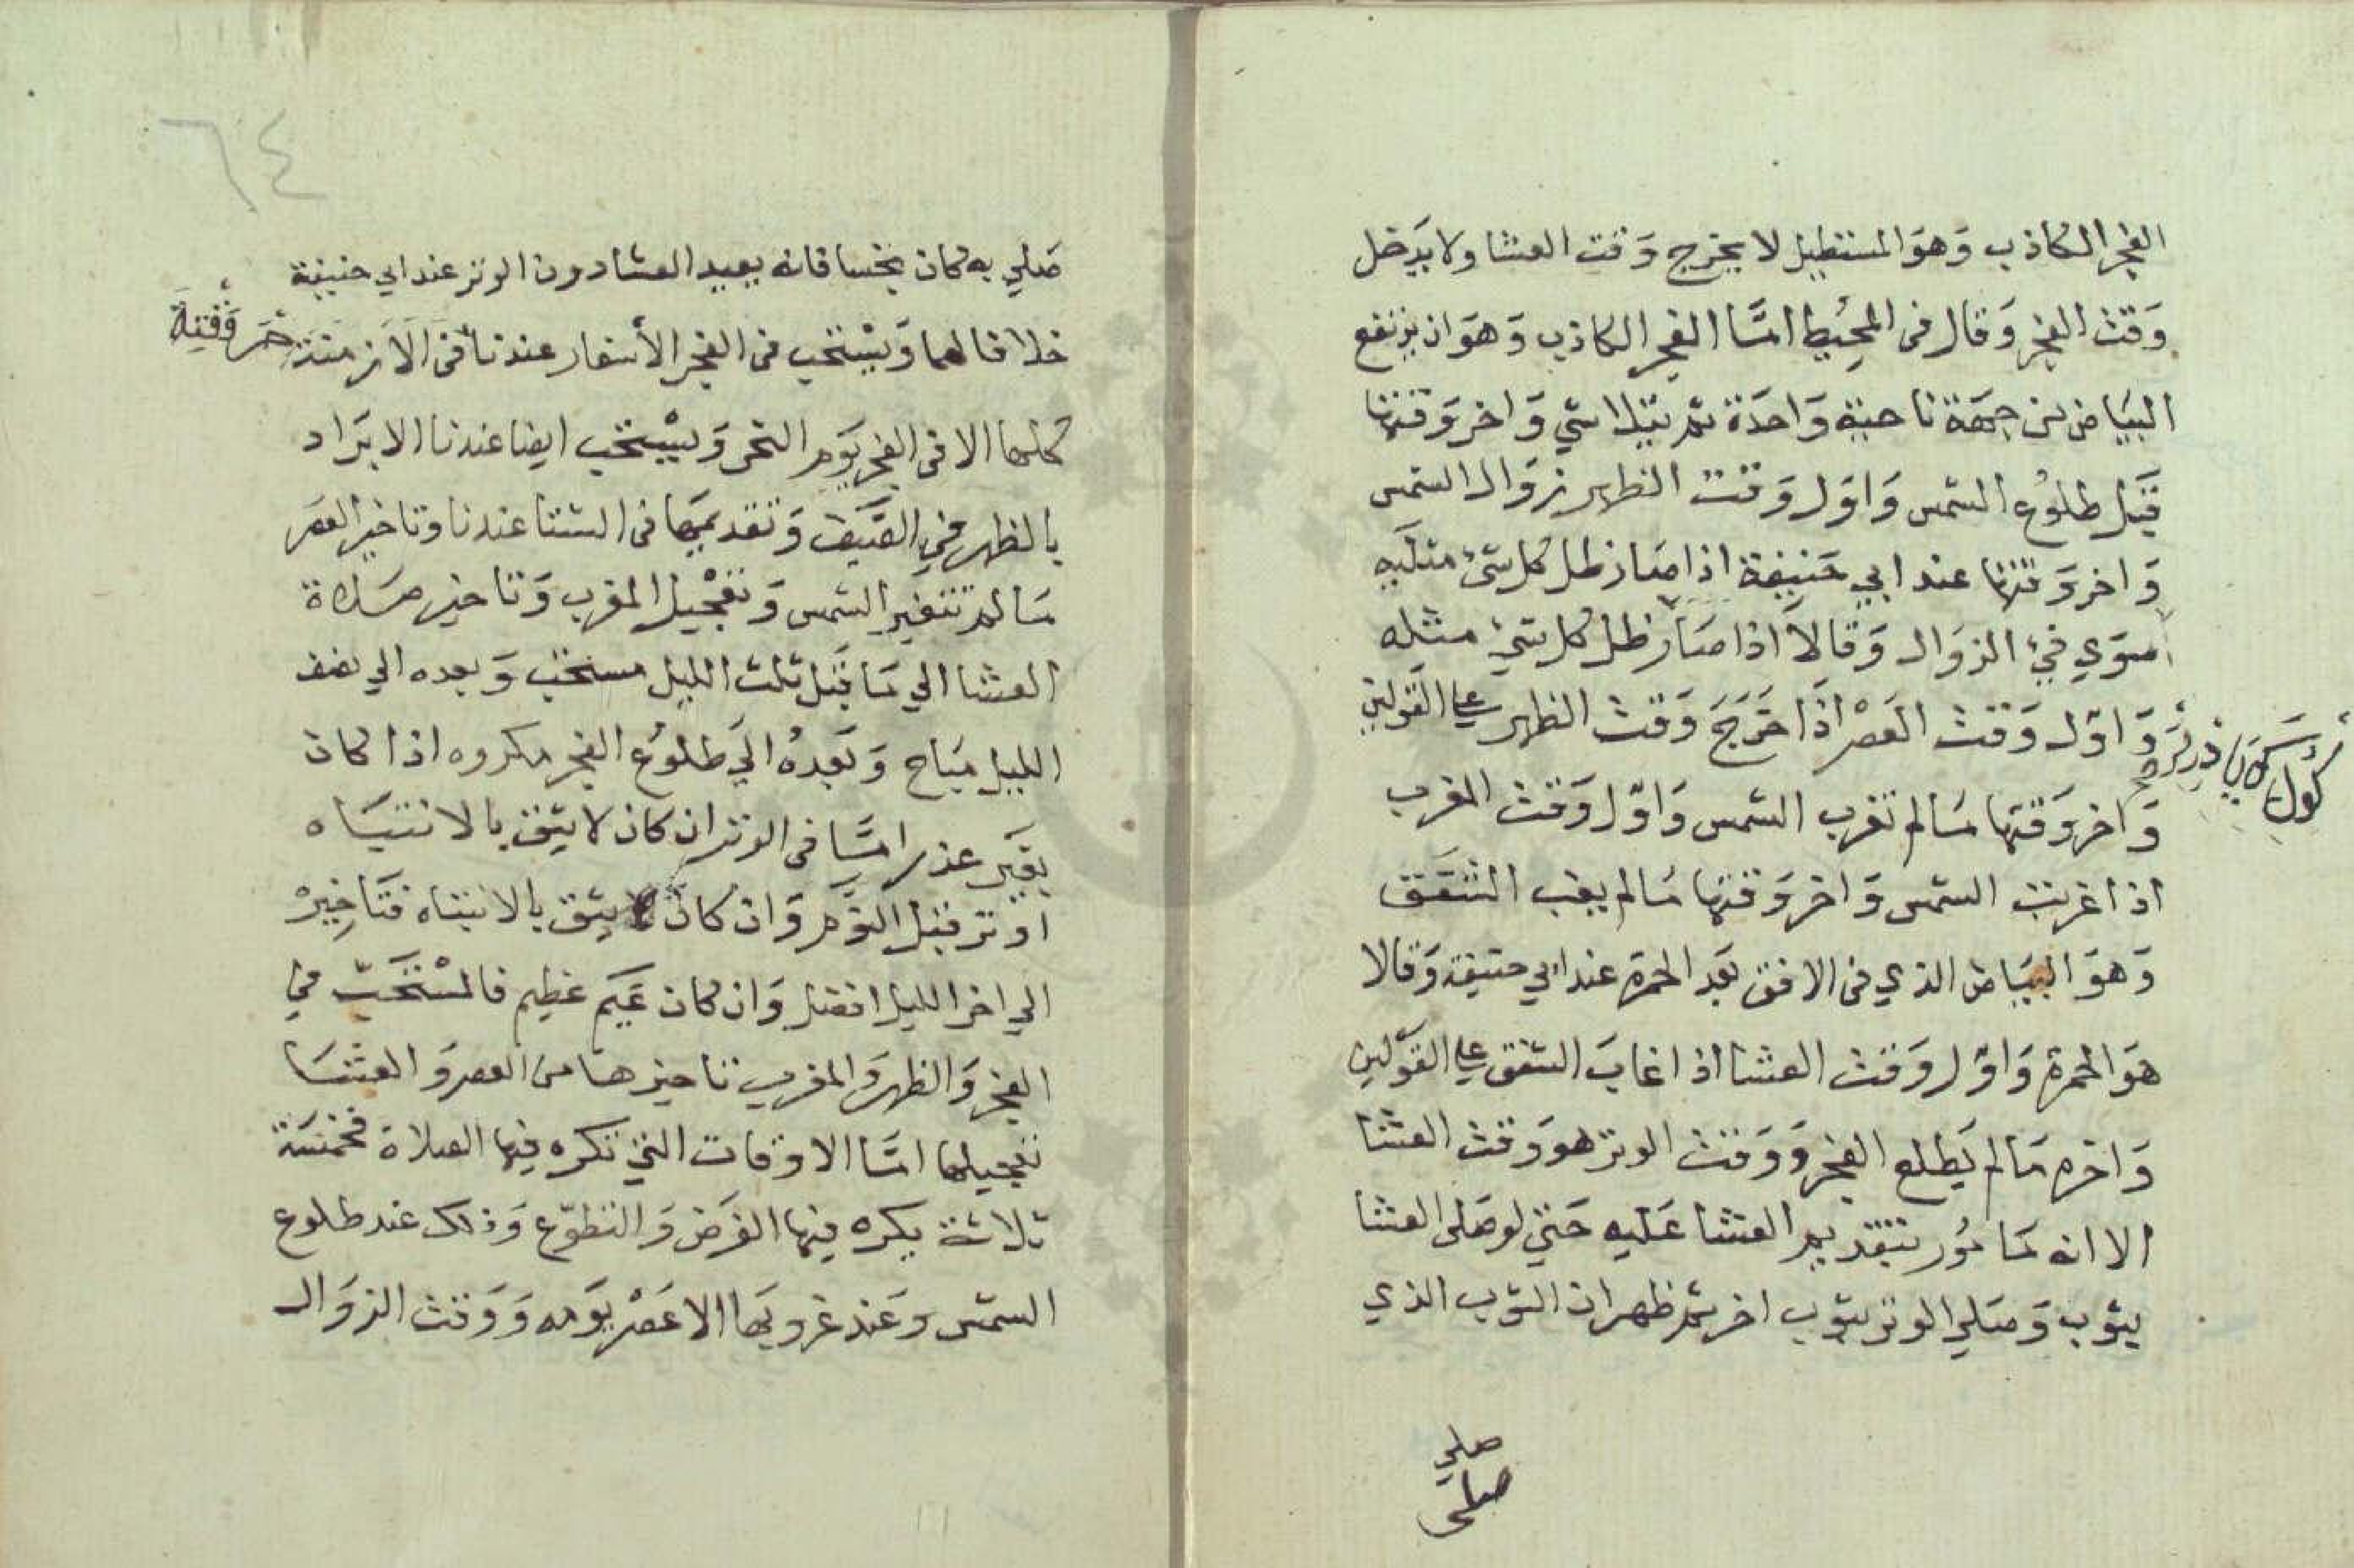 الفجر الكاذب وَهوَ المستطيل لا يخرج وَقت العشا ولا يَدخل
وَقت الفجر وَقال فى المحيُط امَّا الفجر الكاذب وَهوَ ان يرتفع
البيَاض من جهَة ناحية وَاحدَة ثم يتلاشي وَاخر وَقتها
قبَل طلوُع الشمس وَاوَل وَقت الظهر زوَال الشمس
وَاخر وَقتها عند ابي حَنيفة اذا صَار ظل كل شئ مثليَه
سوَي فئ الزوَال وَقالاَ اذا صَار ظل كل شئ مثله
وَاوّل وَقت العَصْر اذَا خَرَجَ وَقت الظهر على القَولين
وَاخر وَقتها مَا لم تغرب الشمس وَاوّل وَقت المغرب
اذا غربت الشمس وَاخر وَقتها مَا لم يغب الشفَق
وَهوَ البيَاض الذي فى الافق بَعد الحمرة عند ابي حنيفة وَقالا
هوَ الحمرة وَاوّل وَقت العشا اذا غابَ الشفق على القوَلين
وَاخره مَا لم يَطلع الفجر وَوَقت الوتر هو وَقت العشا
الا انه مَامُور بتقديم العشا عَليه حَتى لو صَلى العشا
بثوب وَصَلي الوتر بثوب اخر ثم ظهر ان الثوب الذي
صلي
صلى
٦٤
صَلي به كان نجسا فانه يعيد العشا دون الوتر عند ابي حنيفة
خلافا لهما وَيسْتحب فى الفجر الأسفار عندنا فى الاَزمنة
كلها الا فى الفجر يَوم النحر وَيسْتحب ايضا عندنا الابرَاد
بالظهر في الصَّيف وَتقديمهَا فى الشتا عندنا وتاخير العصَر
مَا لم تتغير الشمس وَتعْجيل المغرب وَتاخير صَلاة
العشا الي مَا قبَل ثلث الليل مستحب وَبعده الي نصف
الليل مبَاح وَبَعدهُ الي طلوُع الفجر مكروه اذا كان
بغيَر عذر امَّا فى الوتر ان كان لا يثق بالانتبَاه
اوتر قبل النوَم وَان كان يثق بالانتباه فتَاخيرْ
الي اخر الليل افضل وَان كان غيَم عظيم فالمسْتحَبّ في
الفجر وَالظهر وَالمغرب تاخيرها من العصر وَالعشَا
تعجيلها امَّا الاوقات التي تكره فيها الصلاة فخمسَة
ثلاثة يكره فيها الفرَض وَالتطوّع وَذلك عند طلوع
الشمس وَعَند غروبهَا الا عَصْر يوَمه وَوَقت الزوَال